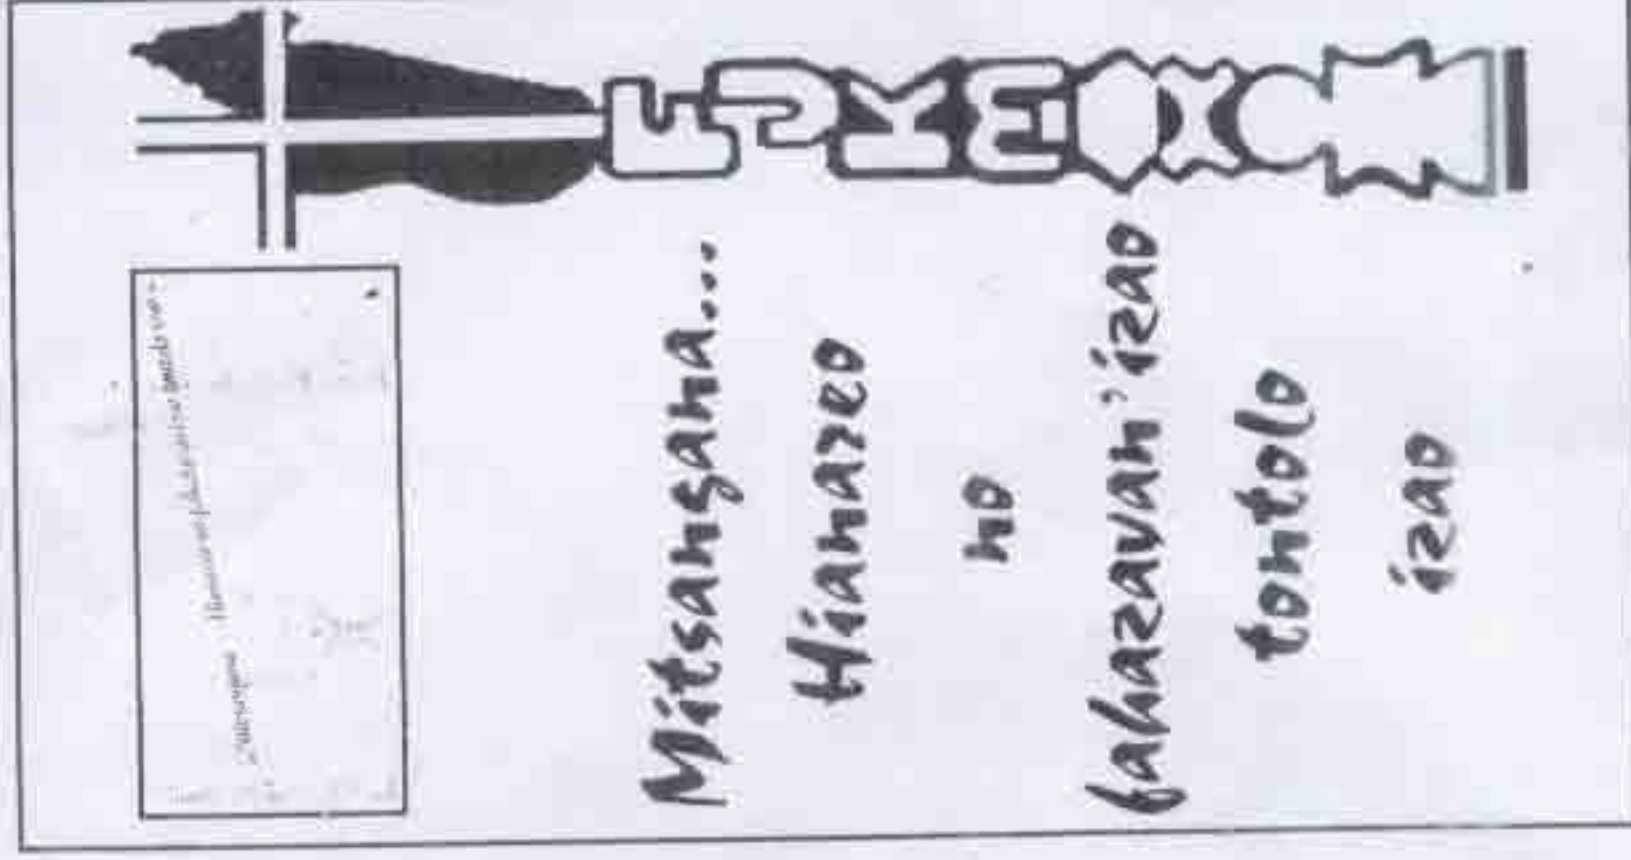 FJKM
Mitsangana...
Hianareo
no
fahazavan'izao
tontolo
izao